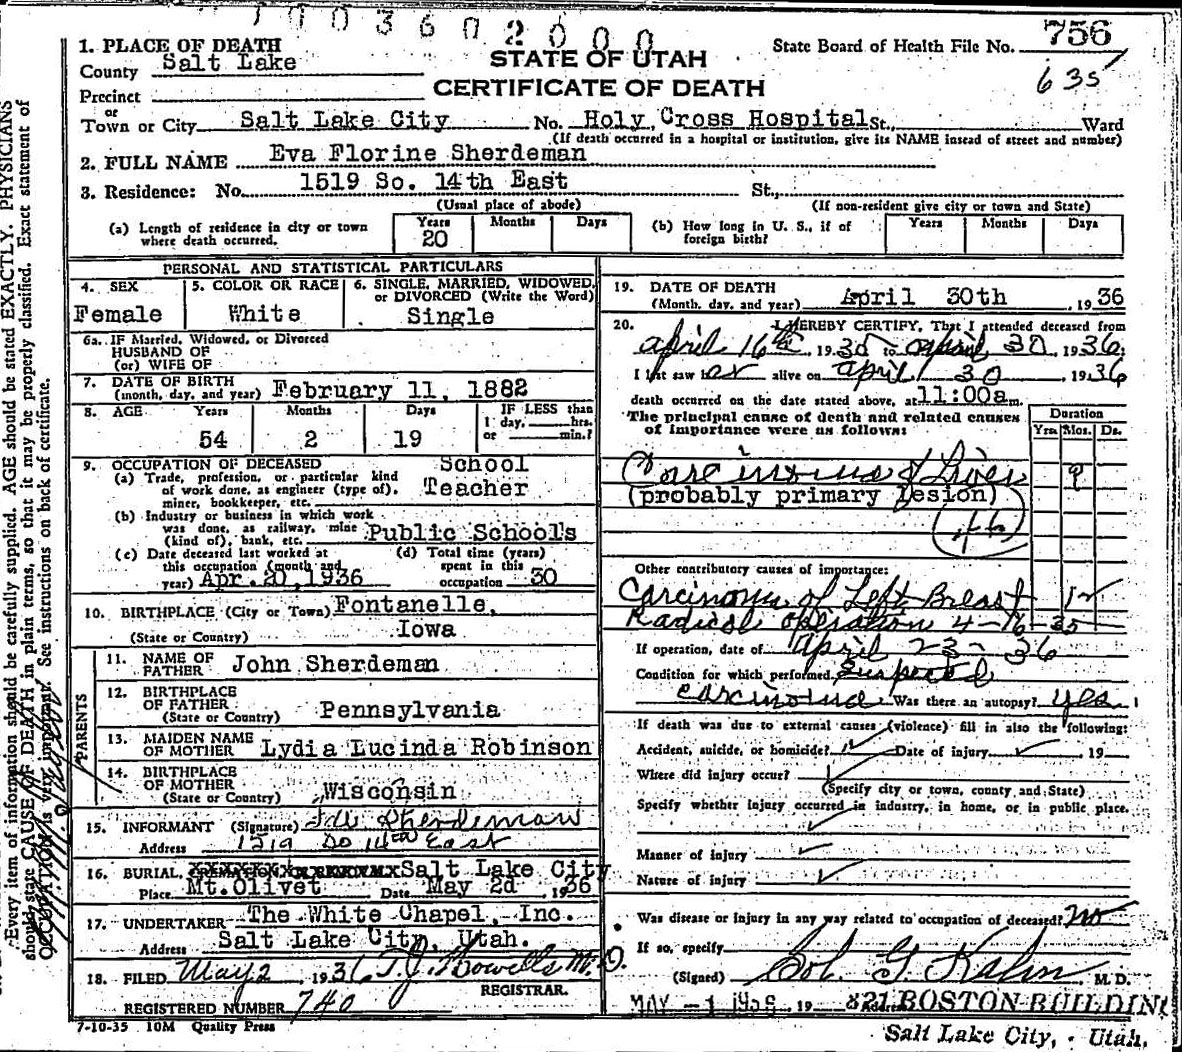 1003602000
1. PLACE OF DEATH
County Salt Lake
STATE OF UTAH
State Board of Health File No. 756
635
Precinct
CERTIFICATE OF DEATH
or
Town or City Salt Lake City No. Holy Cross Hospital St., Ward
(If death occurred in a hospital or institution, give its NAME insead of street and number)
2. FULL NAME Eva Florine Sherdeman
3. Residence: No. 1519 So. 14th East St.,
(Usual place of abode) (If non-resident give city or town and State)
(a) Length of residence in city or town where death occurred. Years 20 Months Days
(b) How long in U. S., if of foreign birth? Years Months Days
PERSONAL AND STATISTICAL PARTICULARS
4. SEX Female
5. COLOR OR RACE White
6. SINGLE, MARRIED, WIDOWED, or DIVORCED (Write the Word) Single
6a. IF Married, Widowed, or Divorced
HUSBAND OF
(or) WIFE OF
7. DATE OF BIRTH
(month, day, and year) February 11, 1882
8. AGE Years 54 Months 2 Days 19 IF LESS than 1 day, hrs. or min.?
9. OCCUPATION OF DECEASED School
(a) Trade, profession, or particular kind of work done, as engineer (type of), miner, bookkeeper, etc. Teacher
(b) Industry or business in which work was done, as railway, mine (kind of), bank, etc. Public Schools
(c) Date deceased last worked at this occupation (month and year) Apr. 20, 1936
(d) Total time (years) spent in this occupation 30
10. BIRTHPLACE (City or Town) Fontanelle,
(State or Country) Iowa
PARENTS
11. NAME OF FATHER John Sherdeman
12. BIRTHPLACE OF FATHER (State or Country) Pennsylvania
13. MAIDEN NAME OF MOTHER Lydia Lucinda Robinson
14. BIRTHPLACE OF MOTHER (State or Country) Wisconsin
15. INFORMANT (Signature) Sherdeman
Address 1519 So 14th East
16. BURIAL, Salt Lake City
Place Mt. Olivet Date May 2d 1936
17. UNDERTAKER The White Chapel, Inc.
Address Salt Lake City, Utah.
18. FILED May 2 1936 T. J. Howells M.D.
REGISTRAR.
REGISTERED NUMBER 740
7-10-35 10M Quality Press
19. DATE OF DEATH
(Month, day, and year) April 30th 1936
20. I HEREBY CERTIFY, That I attended deceased from
April 16th 1935 to April 30 1936
I last saw her alive on April 30 1936
death occurred on the date stated above, at 11:00a m.
The principal cause of death and related causes of importance were as follows:
Duration
Yrs. Mos. Ds.
Carcinoma of Liver 9
(probably primary lesion)
Other contributory causes of importance:
Carcinoma of Left Breast 12
Radical operation 4-16-35
If operation, date of April 23-36
Condition for which performed Suspected
carcinoma Was there an autopsy? yes
If death was due to external causes (violence) fill in also the following:
Accident, suicide, or homicide? Date of injury 19
Where did injury occur?
(Specify city or town, county and State)
Specify whether injury occurred in industry, in home, or in public place.
Manner of injury
Nature of injury
Was disease or injury in any way related to occupation of deceased? no
If so, specify
(Signed) Sol. G. Kahn M. D.
MAY - 1 1936 19 Address 821 BOSTON BUILDING
Salt Lake City, Utah,
Every item of information should be carefully supplied. AGE should be stated EXACTLY. PHYSICIANS
should state CAUSE OF DEATH in plain terms, so that it may be properly classified. Exact statement of
OCCUPATION is very important. See instructions on back of certificate.